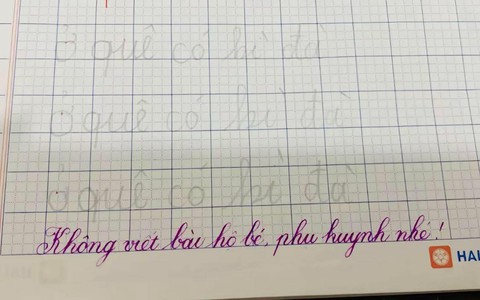 Ở quê có bi đa
Ở quê có bi đa
Ở quê có bi đa
Không viết bài hộ bé, phụ huynh nhé!
HẢI